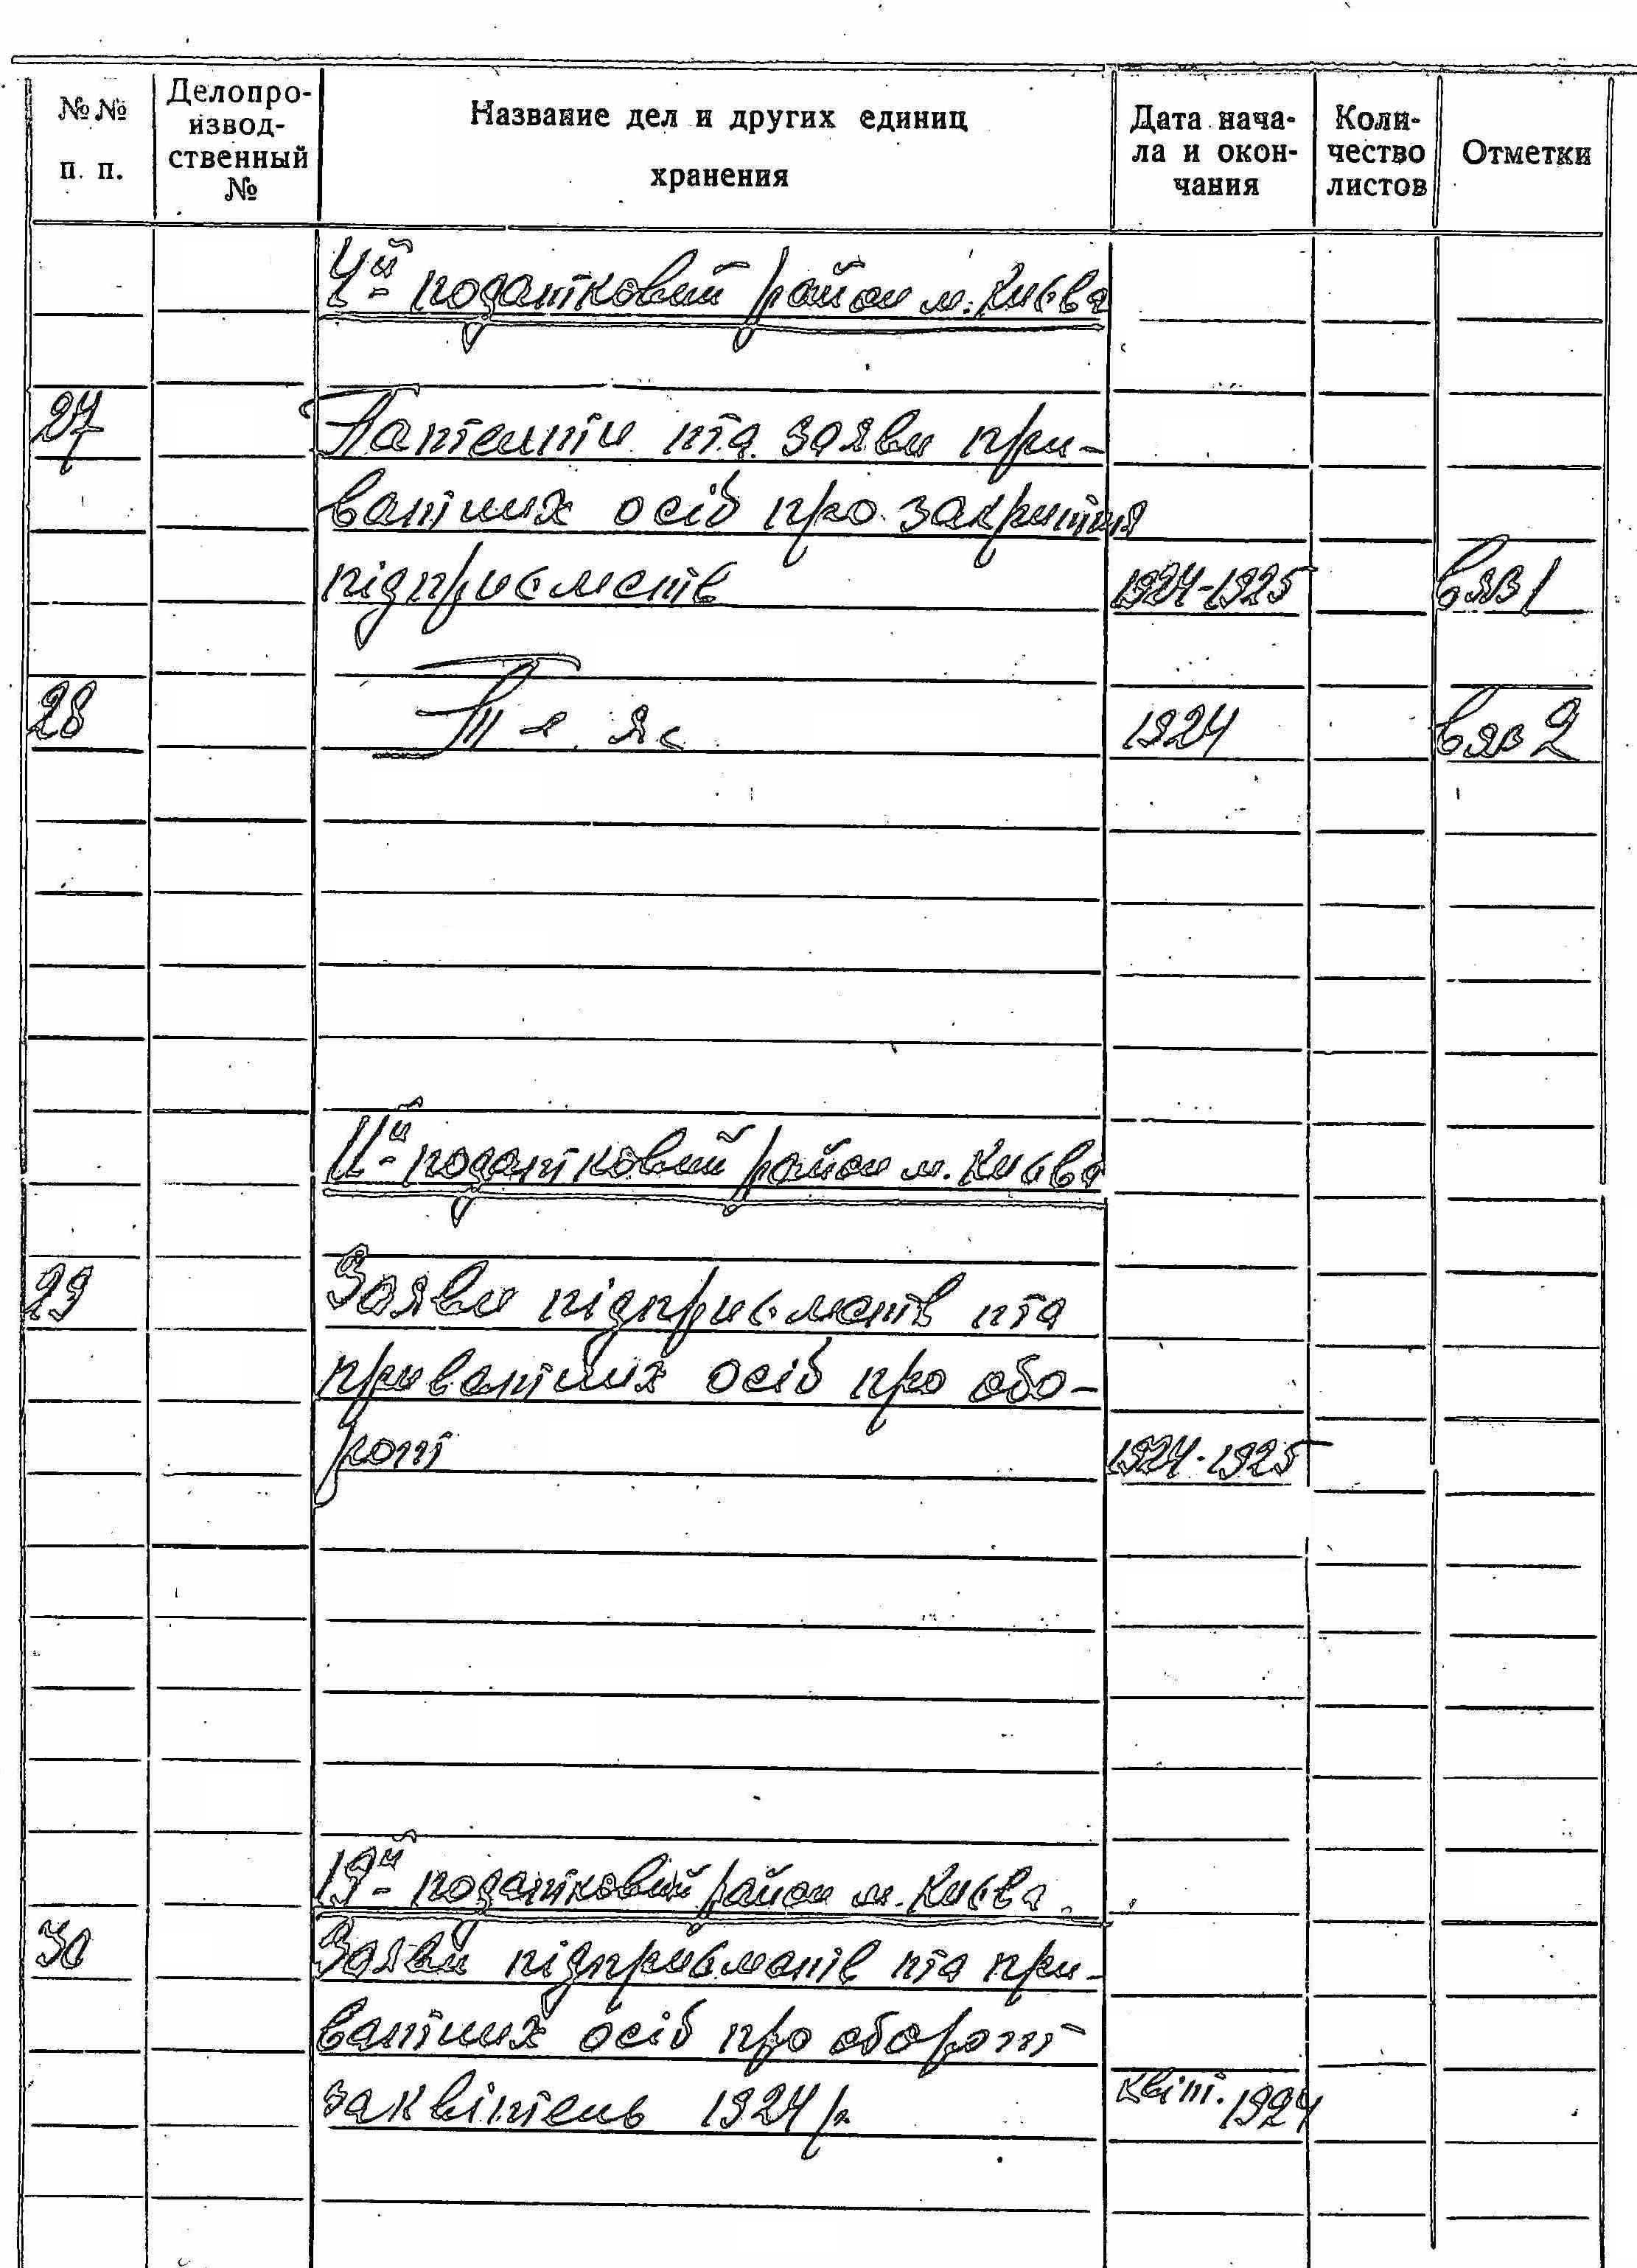 №№ п. п.
Делопро-
извод-
ственный
№
Название дел и других единиц
хранения
Дата нача-
ла и окон-
чания
Коли-
чество
листов
Отметки
4й податковий район м. Києва
27 Патенти та заяви при-
ватних осіб про закриття
підприємств 1924-1925 вяз 1
28 Те ж 1924 вяз 2
11й податковий район м. Києва
29 Заяви підприємств та
приватних осіб про обо-
рот 1924-1925
19й податковий район м. Києва
30 Заяви підприємств та при-
ватних осіб про оборот
за квітень 1924 р. квіт. 1924